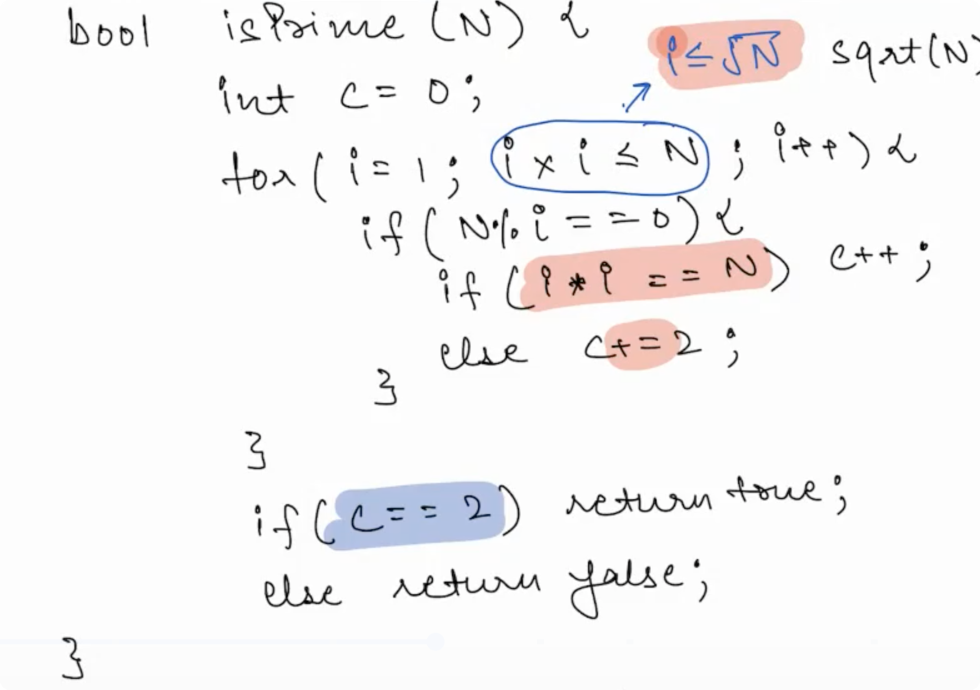 bool isPrime (N) {
i ≤ √N sqrt(N)
int c = 0;
for( i = 1; i × i ≤ N ; i++) {
if( N% i == 0) {
if( i * i == N) c++;
else c+=2;
}
}
if( c == 2) return true;
else return false;
}